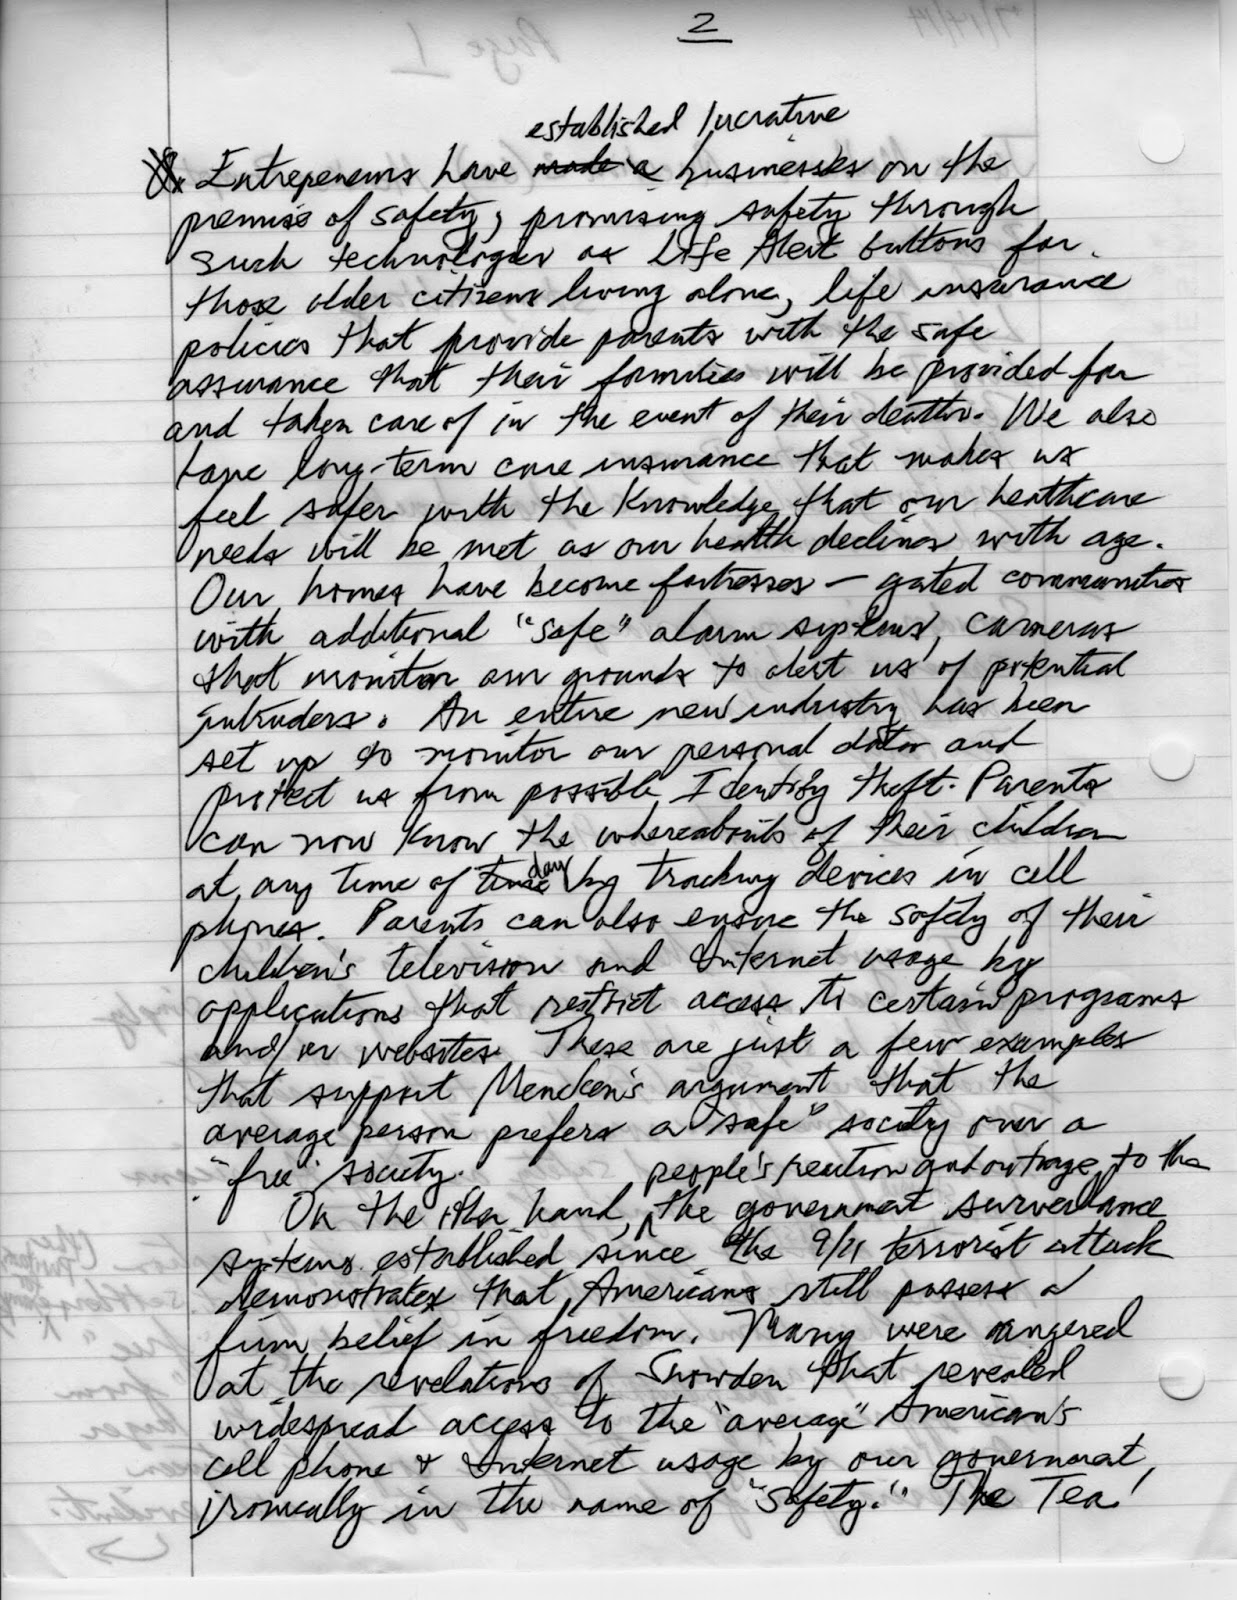 2
established lucrative
Entrepeneurs have made a businesses on the
premise of safety, promising safety through
such technologies as Life Alert buttons for
those older citizens living alone, life insurance
policies that provide parents with the safe
assurance that their families will be provided for
and taken care of in the event of their deaths. We also
have long-term care insurance that makes us
feel safer with the knowledge that our healthcare
needs will be met as our health declines with age.
Our homes have become fortresses – gated communities
with additional "safe" alarm systems, cameras
that monitor our grounds to alert us of potential
intruders. An entire new industry has been
set up to monitor our personal data and
protect us from possible Identity theft. Parents
can now know the whereabouts of their children
at any time of time day by tracking devices in cell
phones. Parents can also ensure the safety of their
children's television and Internet usage by
applications that restrict access to certain programs
and/or websites. These are just a few examples
that support Mencken's argument that the
average person prefers a "safe" society over a
"free" society.
people's reaction and outrage to the
On the other hand, the government surveillance
systems established since the 9/11 terrorist attack
demonstrates that Americans still possess a
firm belief in freedom. Many were angered
at the revelations of Snowden that revealed
widespread access to the "average" American's
cell phone & Internet usage by our government,
ironically in the name of "safety." The Tea